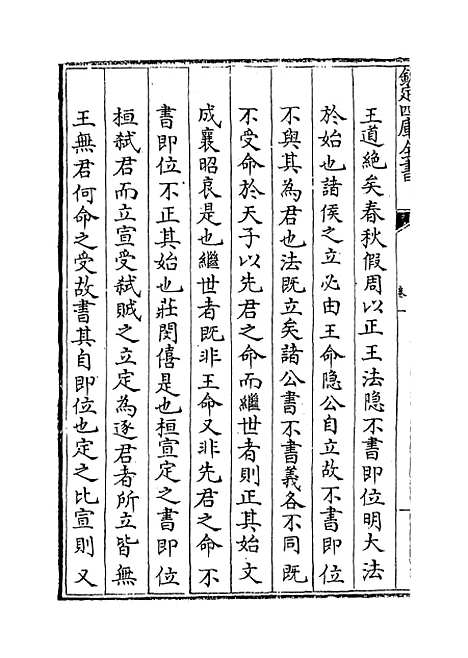 欽定四庫全書
卷一
王道絶矣春秋假周以正王法隐不書即位明大法
於始也諸侯之立必由王命隐公自立故不書即位
不與其為君也法既立矣諸公書不書義各不同既
不受命於天子以先君之命而繼世者則正其始文
成襄昭哀是也繼世者既非王命又非先君之命不
書即位不正其始也莊閔僖是也桓宣定之書即位
桓弑君而立宣受弑賊之立定為逐君者所立皆無
王無君何命之受故書其自即位也定之比宣則又